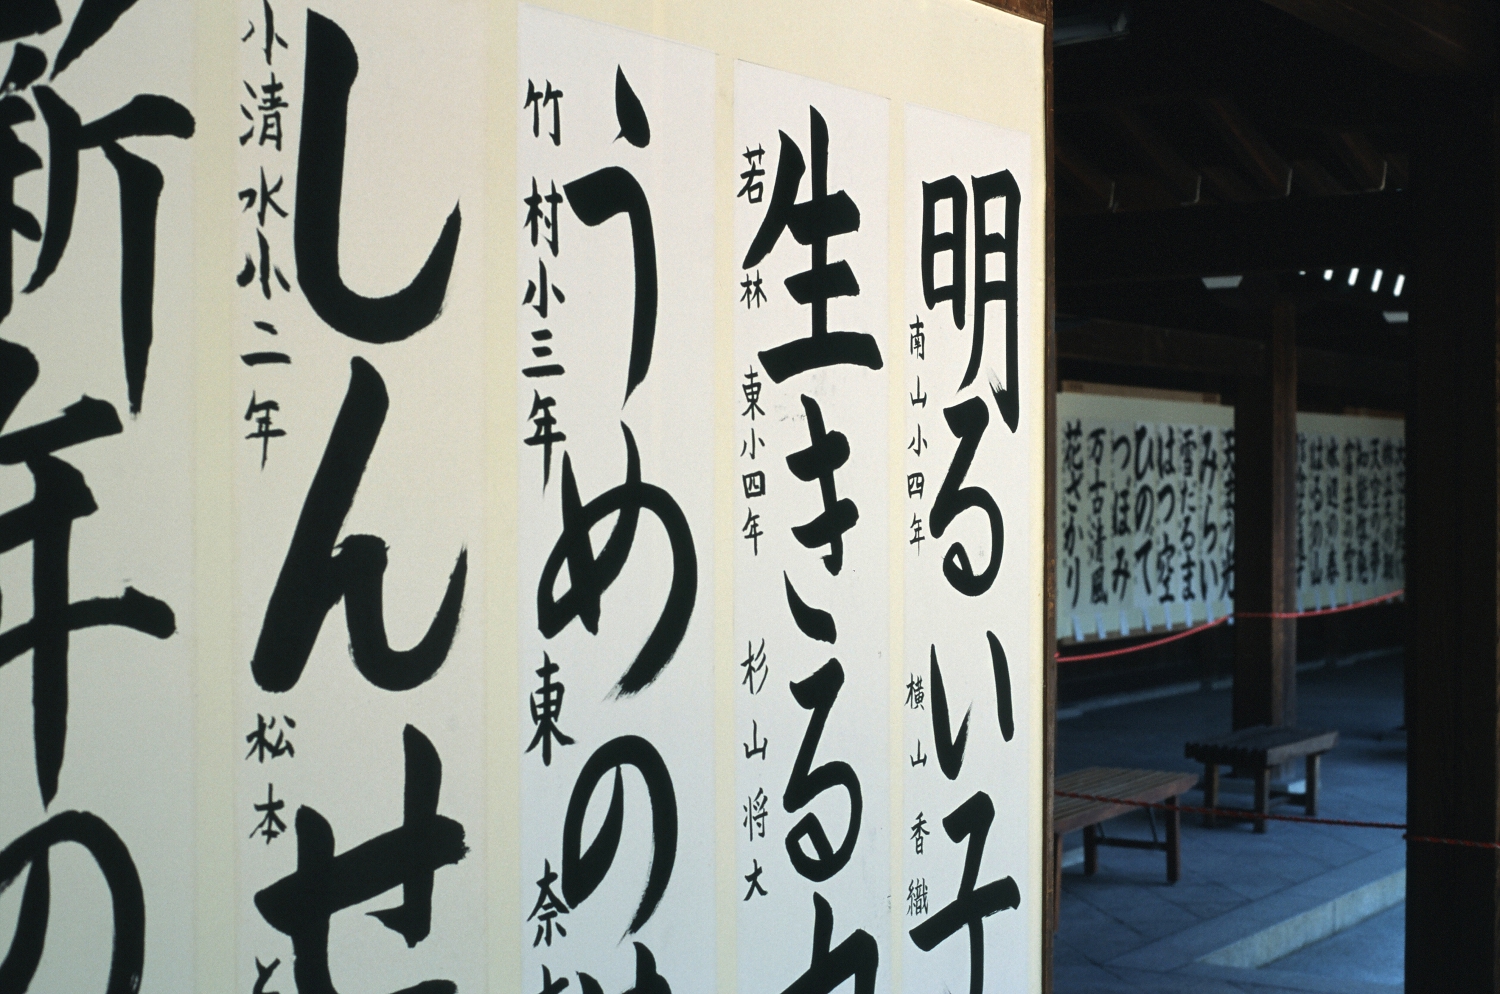 明るい子
南山小四年 横山香織
生きる力
若林東小四年 杉山将大
うめの
竹村小三年 東 奈
しんせ
小清水小二年 松本 と
新年の
花ざかり
万古清風
つぼみ
ひのて
はつ空
雪だるま
みらい
はるの山